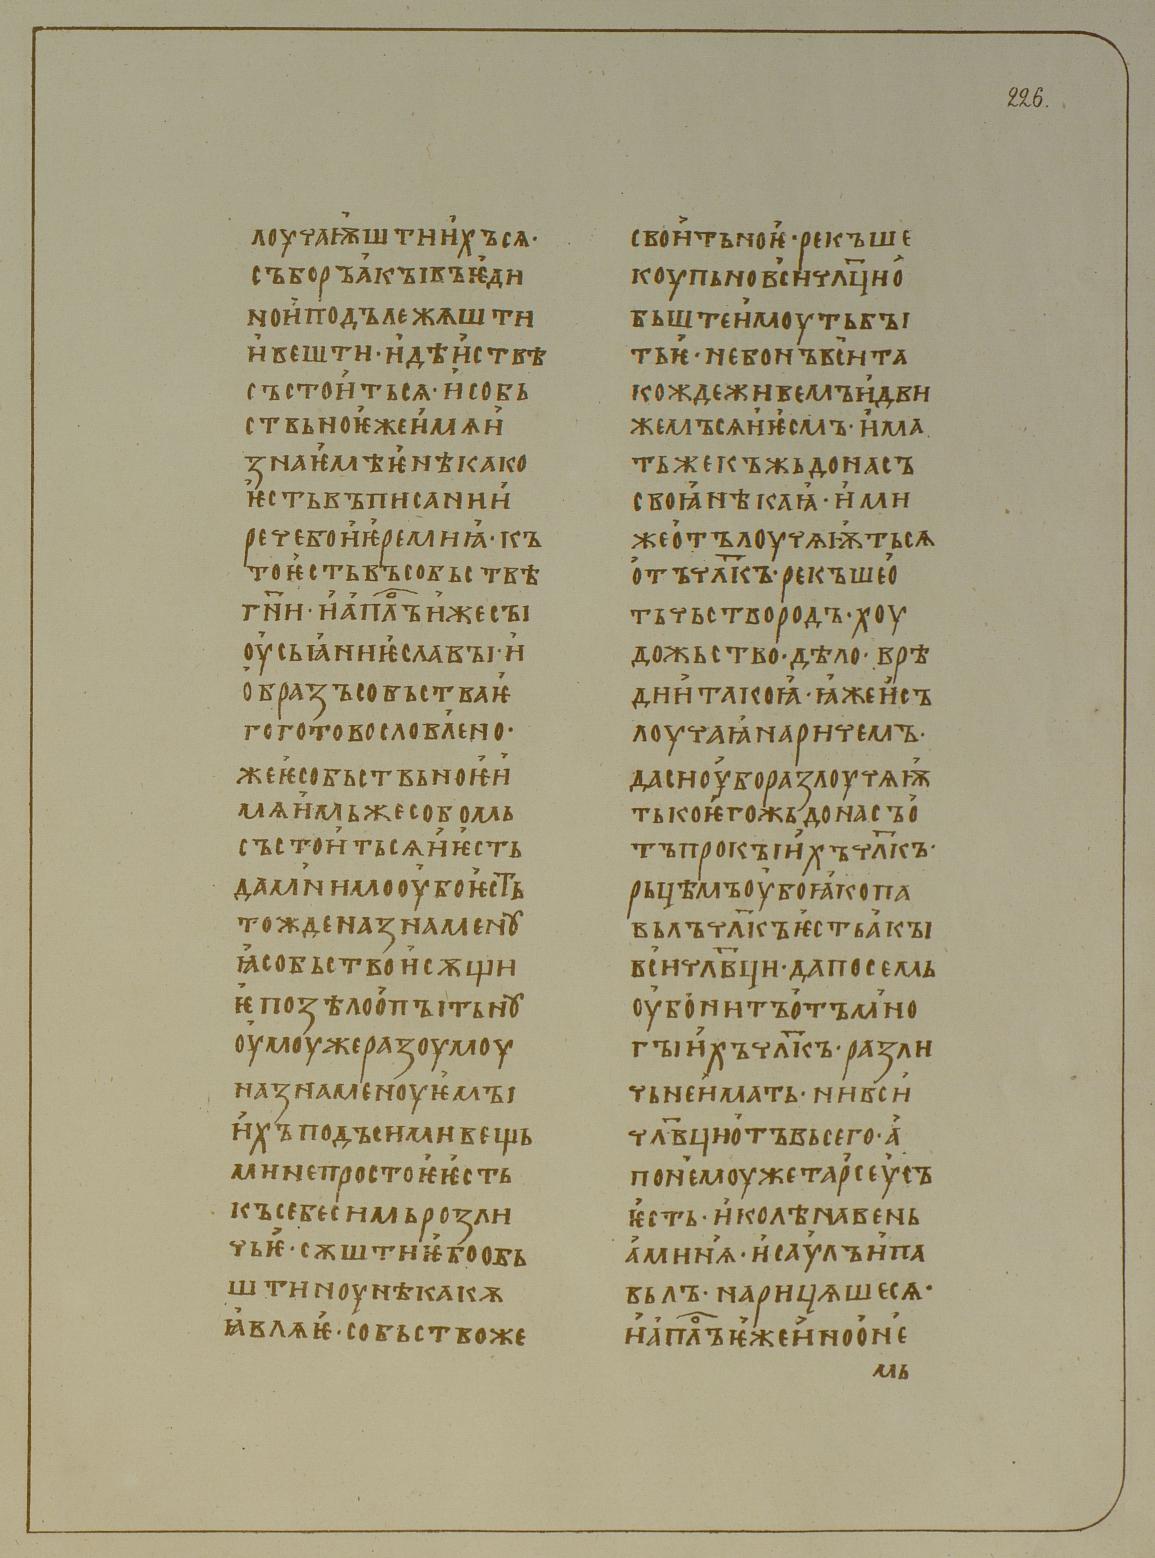 226.
лоучаѭштиихъсѧ·
съборъакъівъѥди
ноиподълежѫшти
ивешти·идѣиствѣ
състоитьсѧ·исобь
ствьноѥжеимѧи
знаѥмѣѥнѣкако
ѥстьвъписании
речебоиѥремиꙗ·къ
тоѥстьвъсобьствѣ
гн҃и·иапл҃ъижесъі
оусьꙗниѥславъі·и
образъсобьстваѥ
гоготовословлено·
жеѥсобьствьноѥи
мѧимьжесобомь
състоитьсѧиѥсть
даминимооубоѥсть
тожденазнаменꙋ
ꙗсобьствоисѫщи
ѥпозѣлоопъітьнꙋ
оумоужеразоумоу
назнаменоуѥмъі
ихъподъсимивещь
минепростоѥѥсть
късебесимьрозли
чьѥ·сѫштиѥбообь
штиноунѣкакѫ
ꙗвлѧѥ·собьствоже
своитьноѥ·рекъше
коупьновсичл҃цио
бьштеимоутьбъі
тьѥ·небонъвсита
кождеживемъидви
жемъсѧиѥсмъ·има
тьжекъжьдонасъ
своꙗнѣкаꙗ·ими
жеотълоучѧѭтьсѧ
отъчл҃къ·рекъшео
тьчьствородъ·хоу
дожьство·дѣло·врѣ
диитакоꙗ·ꙗжеисъ
лоучаꙗнаричемъ·
дасноуборазлоучѧѭ
тькоѥгожьдонасъо
тъпрокъіихъчл҃къ·
рьцѣмъоубоꙗкопа
вьлъчл҃къѥстьакъі
всичл҃вци·дапосемь
оубонитъотъмно
гъіихъчл҃къ·разли
чьнеимать·нивси
чл҃вциотъвьсего·а
понемоужетарсеусъ
ѥсть·иколѣнавень
аминѧ·исаулъипа
вьлъ·нарицѧшесѧ·
иапл҃ъѥжеинооне
мь